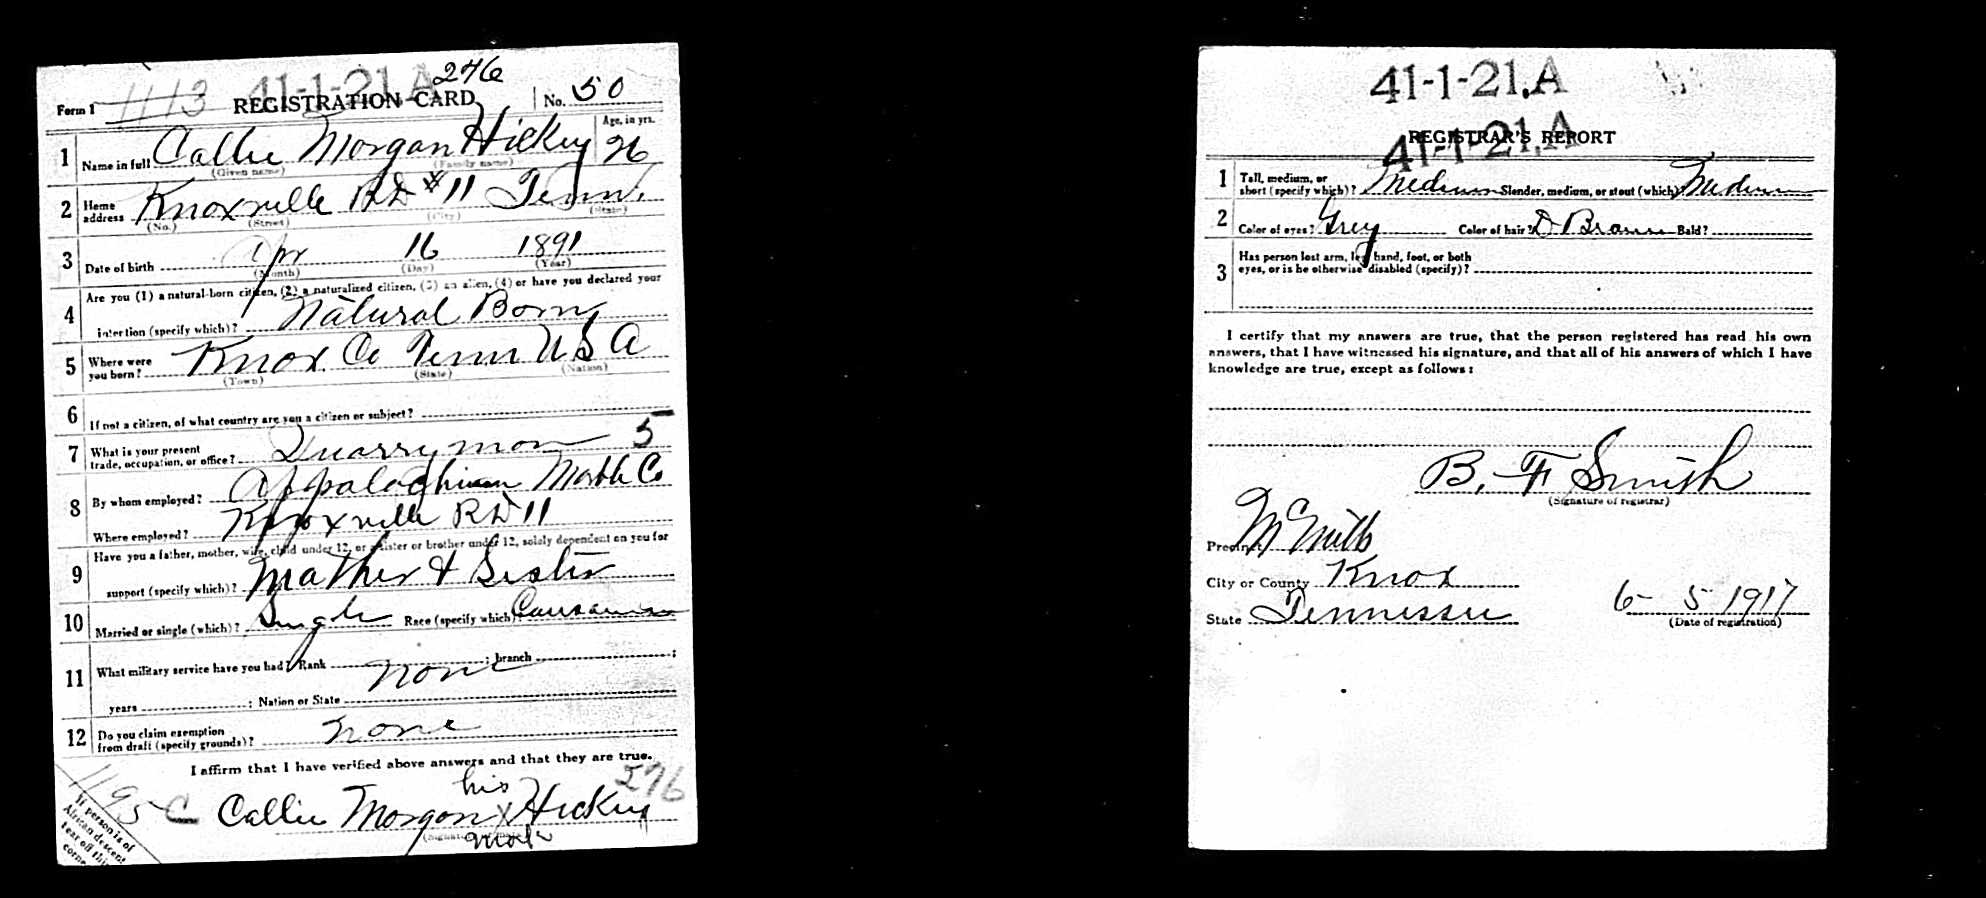 1113 41-1-21.A 276
Form 1 REGISTRATION CARD No. 50
1 Name in full Callie Morgan Hickey Age, in yrs. 26
(Given name) (Family name)
2 Home address Knoxville RD #11 Tenn.
(No.) (Street) (City) (State)
3 Date of birth Apr 16 1891
(Month) (Day) (Year)
4 Are you (1) a natural-born citizen, (2) a naturalized citizen, (3) an alien, (4) or have you declared your
intention (specify which)? Natural Born
5 Where were you born? Knox Co Tenn U S A
(Town) (State) (Nation)
6 If not a citizen, of what country are you a citizen or subject?
7 What is your present trade, occupation, or office? Quarryman 5
8 By whom employed? Appalachian Marble Co
Where employed? Knoxville RD 11
9 Have you a father, mother, wife, child under 12, or a sister or brother under 12, solely dependent on you for
support (specify which)? Mother & Sister
10 Married or single (which)? Single Race (specify which)? Caucasian
11 What military service have you had? Rank none ; branch ;
years ; Nation or State
12 Do you claim exemption from draft (specify grounds)? none
I affirm that I have verified above answers and that they are true.
1195 C 276
his
Callie Morgan X Hickey
mark
If person is of
African descent
tear off this
corner
41-1-21.A
REGISTRAR'S REPORT
41-1-21.A
1 Tall, medium, or short (specify which)? Medium Slender, medium, or stout (which)? Medium
2 Color of eyes? Grey Color of hair? D Brown Bald?
3 Has person lost arm, leg, hand, foot, or both
eyes, or is he otherwise disabled (specify)?
I certify that my answers are true, that the person registered has read his own
answers, that I have witnessed his signature, and that all of his answers of which I have
knowledge are true, except as follows:
B. F Smith
(Signature of registrar)
Precinct McMills
City or County Knox
State Tennessee 6- 5 1917
(Date of registration)